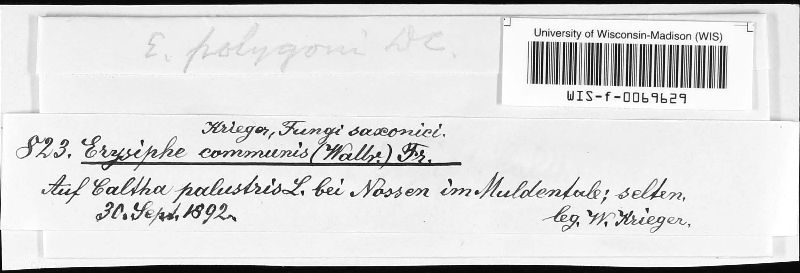 E. polygoni DC.
University of Wisconsin-Madison (WIS)
WIS-f-0069629
Krieger, Fungi saxonici.
823. Erysiphe communis (Wallr.) Fr.
Auf Caltha palustris L. bei Nossen im Muldentale; selten.
30. Sept. 1892.
leg. W. Krieger.